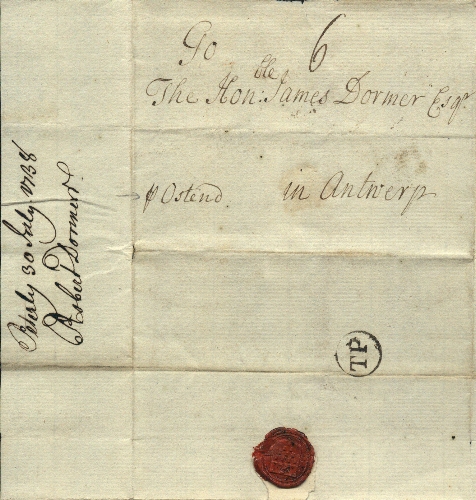 To
6
The Hon:ble James Dormer Esqr
p Ostend.
in Antwerp
Peterly 30 July 1738
Robert Dormer
TP